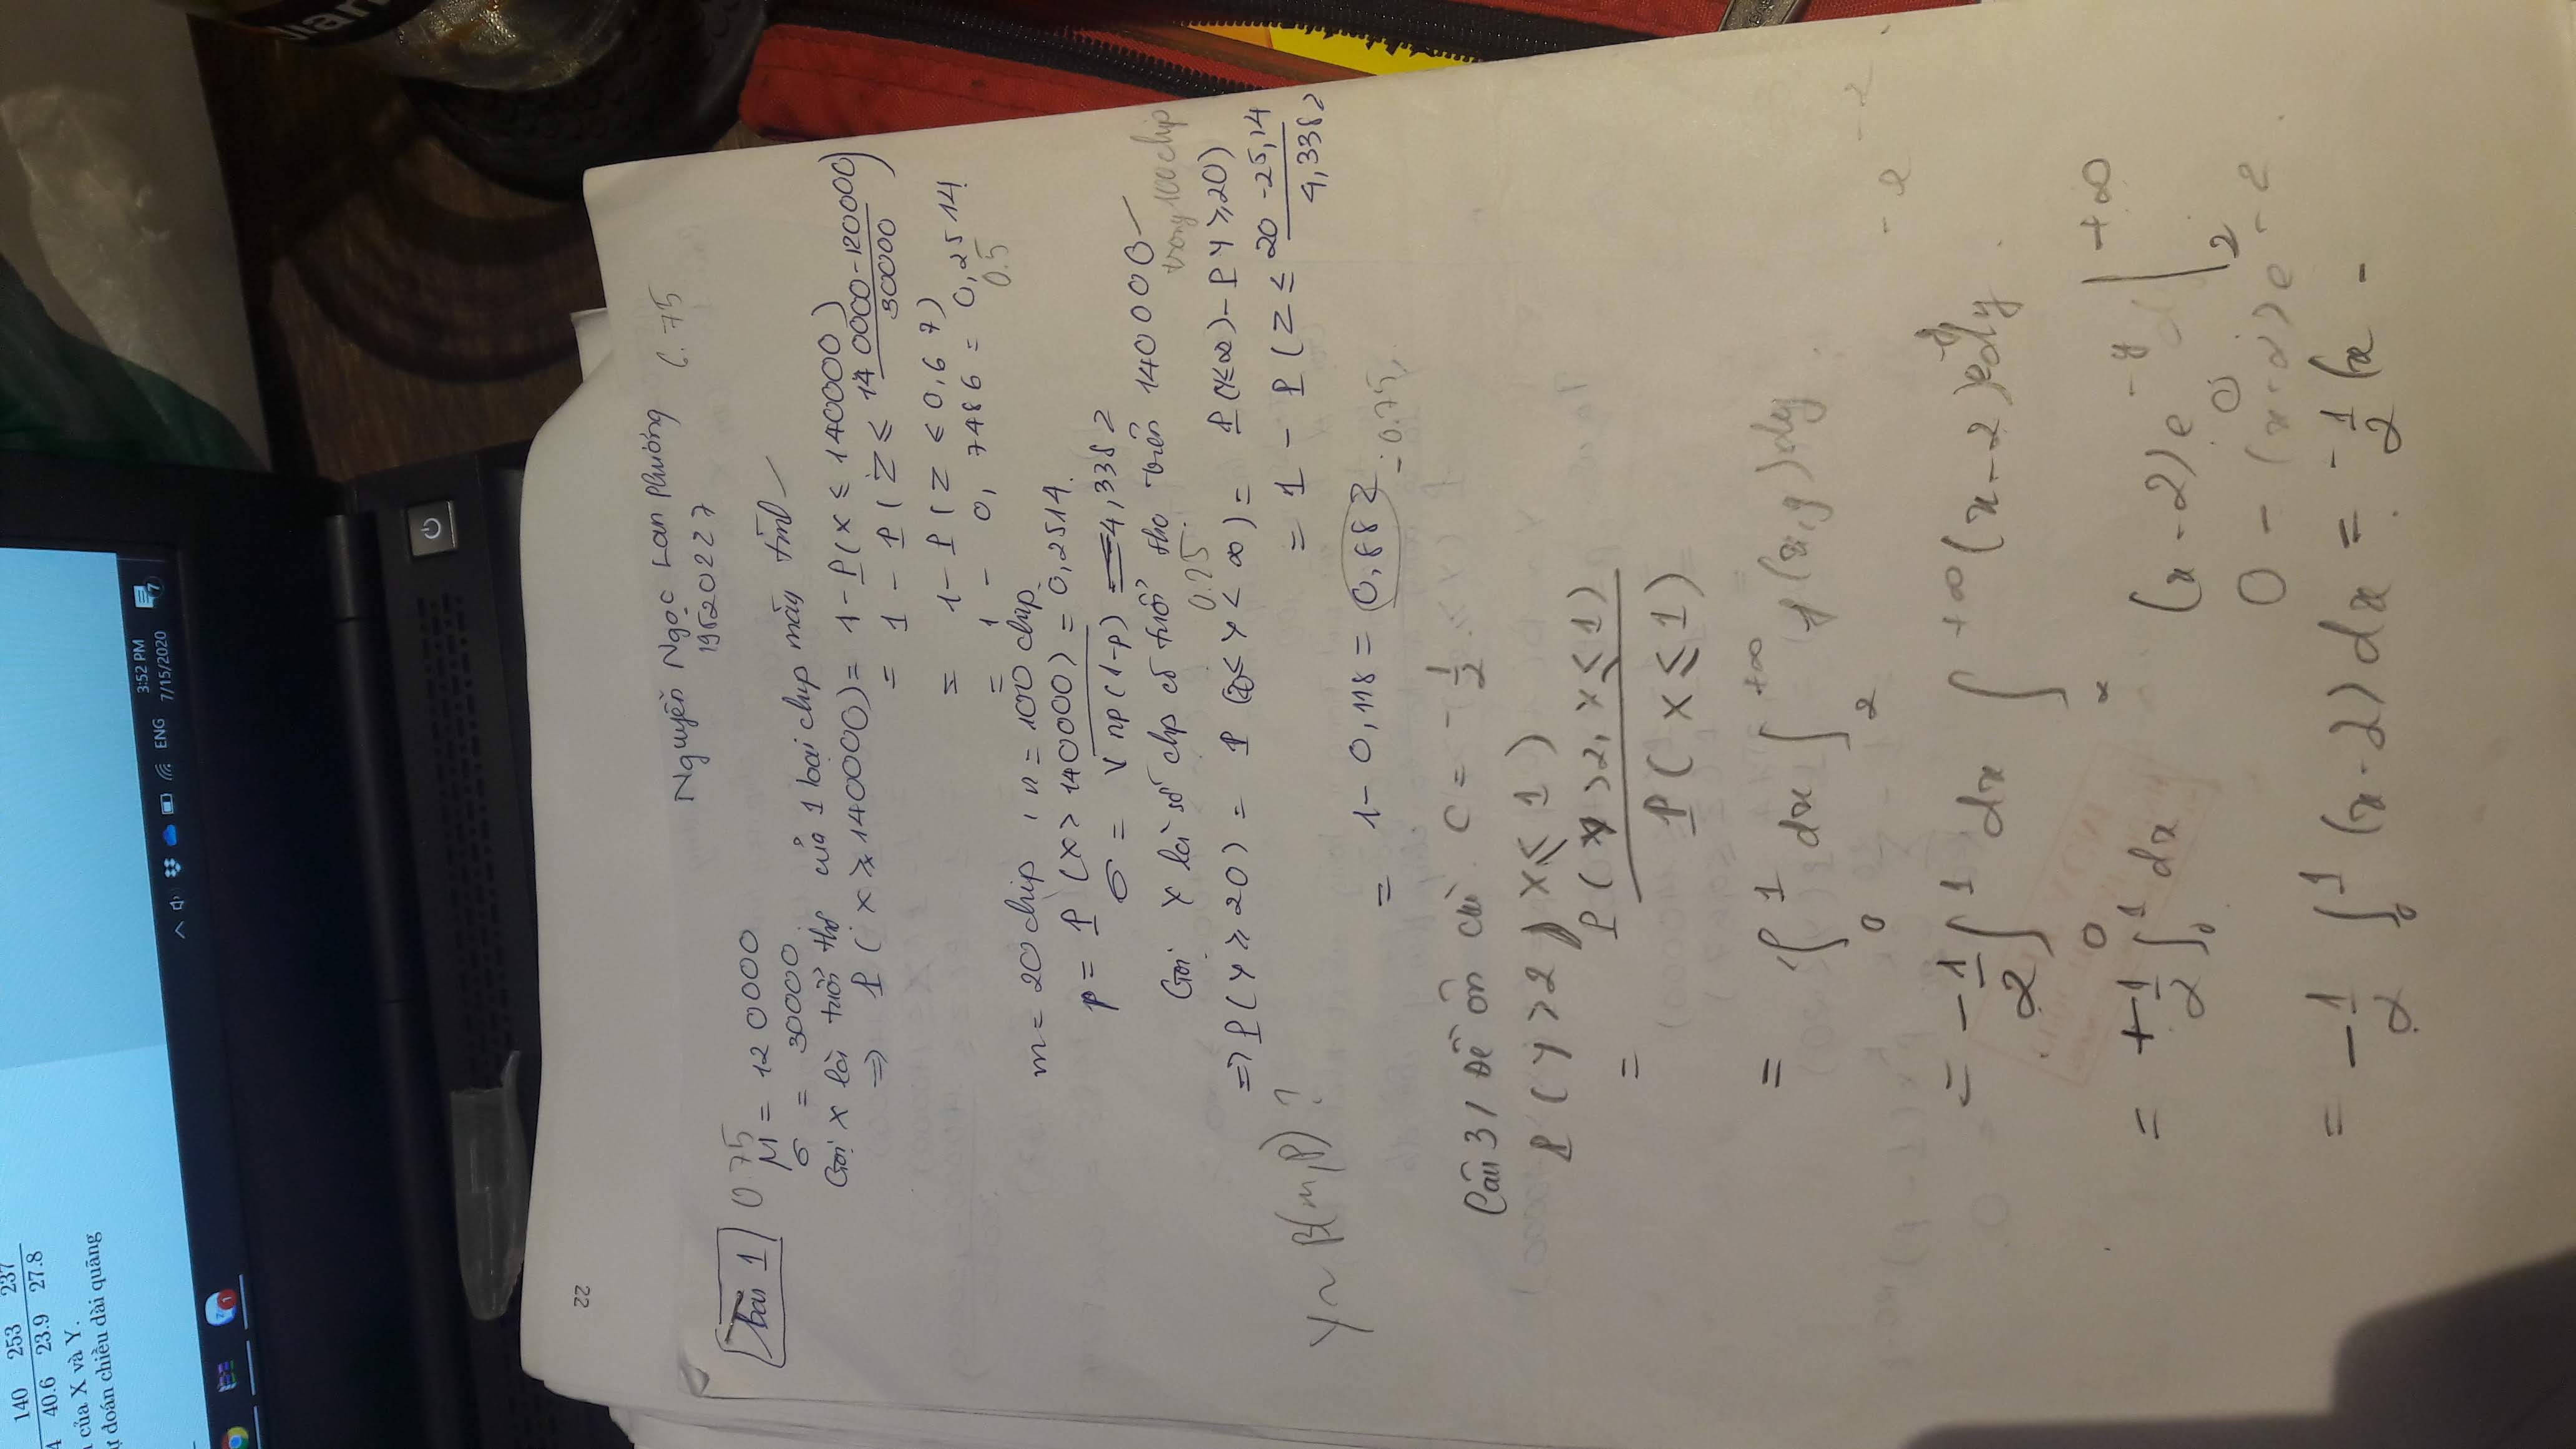 140 253 237
4 40.6 23.9 27.8
của X và Y.
ự đoán chiều dài quãng
3:52 PM
ENG
7/15/2020
7
22
Nguyễn Ngọc Lan Phương 6.75
19520227
bài 1 0.75
μ = 120000
σ = 30000
Gọi X là tuổi thọ của 1 loại chip máy tính
⇒ P(X ≥ 140000) = 1 - P(X ≤ 140000)
= 1 - P(Z ≤ (140000 - 120000)/30000)
= 1 - P(Z ≤ 0,67)
= 1 - 0,7486 = 0,2514
0.5
m = 20 chip, n = 100 chip
p = P(X > 140000) = 0,2514.
σ = √np(1-p) = 4,3382
Gọi Y là số chip có tuổi thọ trên 140000
trong 100 chip
0.25
⇒ P(Y ≥ 20) = P(20 ≤ Y < ∞) = P(Y ≤ ∞) - P(Y ≥ 20)
Y ~ B(n,p) ?
= 1 - P(Z ≤ (20 - 25,14)/4,3382
= 1 - 0,118 = 0,882
- 0.75
Câu 3/ Đề ôn CK C = - 1/2.
P(Y > 2, X ≤ 1)
= P(Y > 2, X ≤ 1) / P(X ≤ 1)
= ∫₀¹ dx ∫₂^{+∞} f(x,y)dy
- e^{-2}
= -1/2 ∫₀¹ dx ∫₂^{+∞} (x-2)e^{-y}dy
= +1/2 ∫₀¹ dx (x-2)e^{-y} |₂^{+∞}
0 - (x-2)e^{-2}
= -1/2 ∫₀¹ (x-2)dx = -1/2 (x -